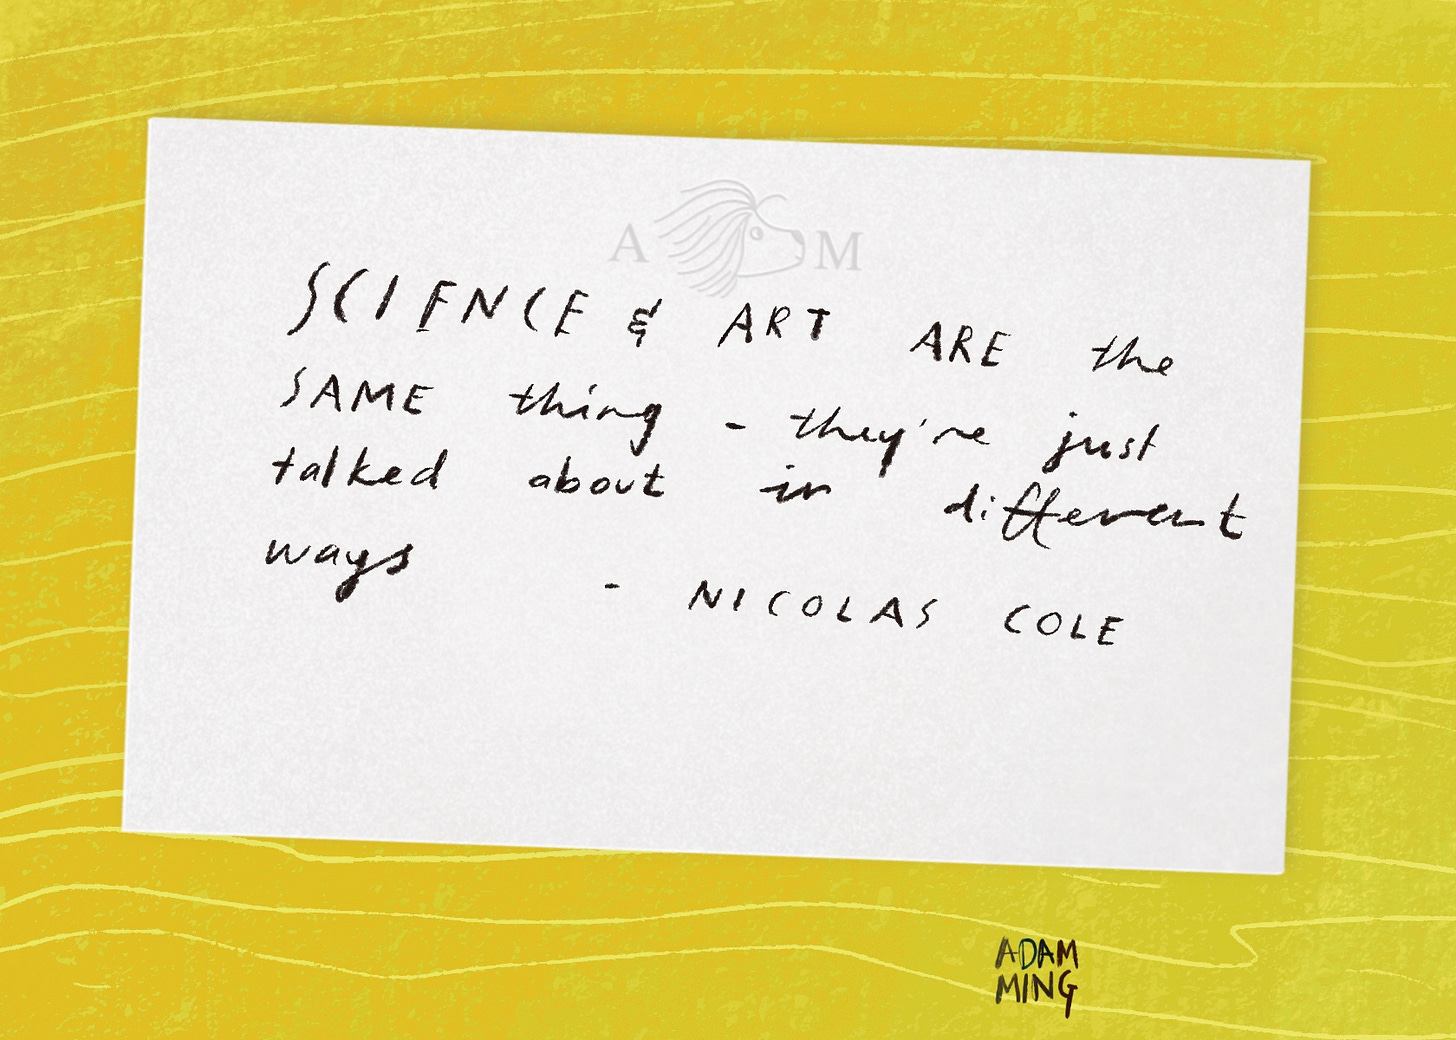 A M
SCIENCE & ART ARE the
SAME thing - they're just
talked about in different
ways
- NICOLAS COLE
ADAM
MING